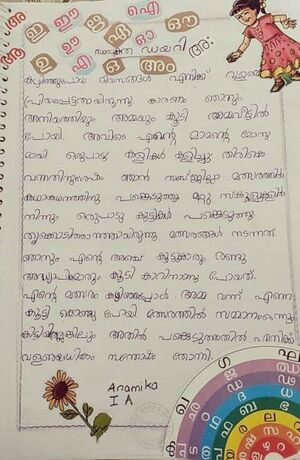 അ ഇ ഈ എ ഐ
ആ ഉ ഊ ഏ ഓ ഔ
ഉ എ ഒ അം അഃ
സംയുക്ത ഡയറി
കഴിഞ്ഞുപോയ ദിവസങ്ങൾ എനിക്ക് വളരെ
പ്രിയപ്പെട്ടതായിരുന്നു കാരണം ഞാനും
അനിയത്തിയും അമ്മയും കൂടി അമ്മവീട്ടിൽ
പോയി. അവിടെ എന്റെ മാമന്റെ മോനു
മായി ഒരുപാടു കളികൾ കളിച്ചു തിരികെ
വന്നതിനുശേഷം ഞാൻ സബ്ജില്ലാ മത്സരത്തിൽ
കഥാകഥനത്തിനു പങ്കെടുത്തു മറ്റു സ്കൂളുകളിൽ
നിന്നും ഒരുപാടു കുട്ടികൾ പങ്കെടുത്തു
തൃക്കൊടിത്താനത്തായിരുന്നു മത്സരങ്ങൾ നടന്നത്
ഞാനും എന്റെ അഞ്ച് കൂട്ടുകാരും രണ്ടു
അദ്ധ്യാപികമാരും കൂടി കാറിനാണു പോയത്.
എന്റെ മത്സരം കഴിഞ്ഞപ്പോൾ അമ്മ വന്ന് എന്നെ
കൂട്ടി കൊണ്ടു പോയി മത്സരത്തിൽ സമ്മാനംഒന്നും
കിട്ടിയില്ലങ്കിലും അതിൽ പങ്കെടുത്തതിൽ എനിക്ക്
വളരെയധികം സന്തോഷം തോന്നി.
Anamika
I A